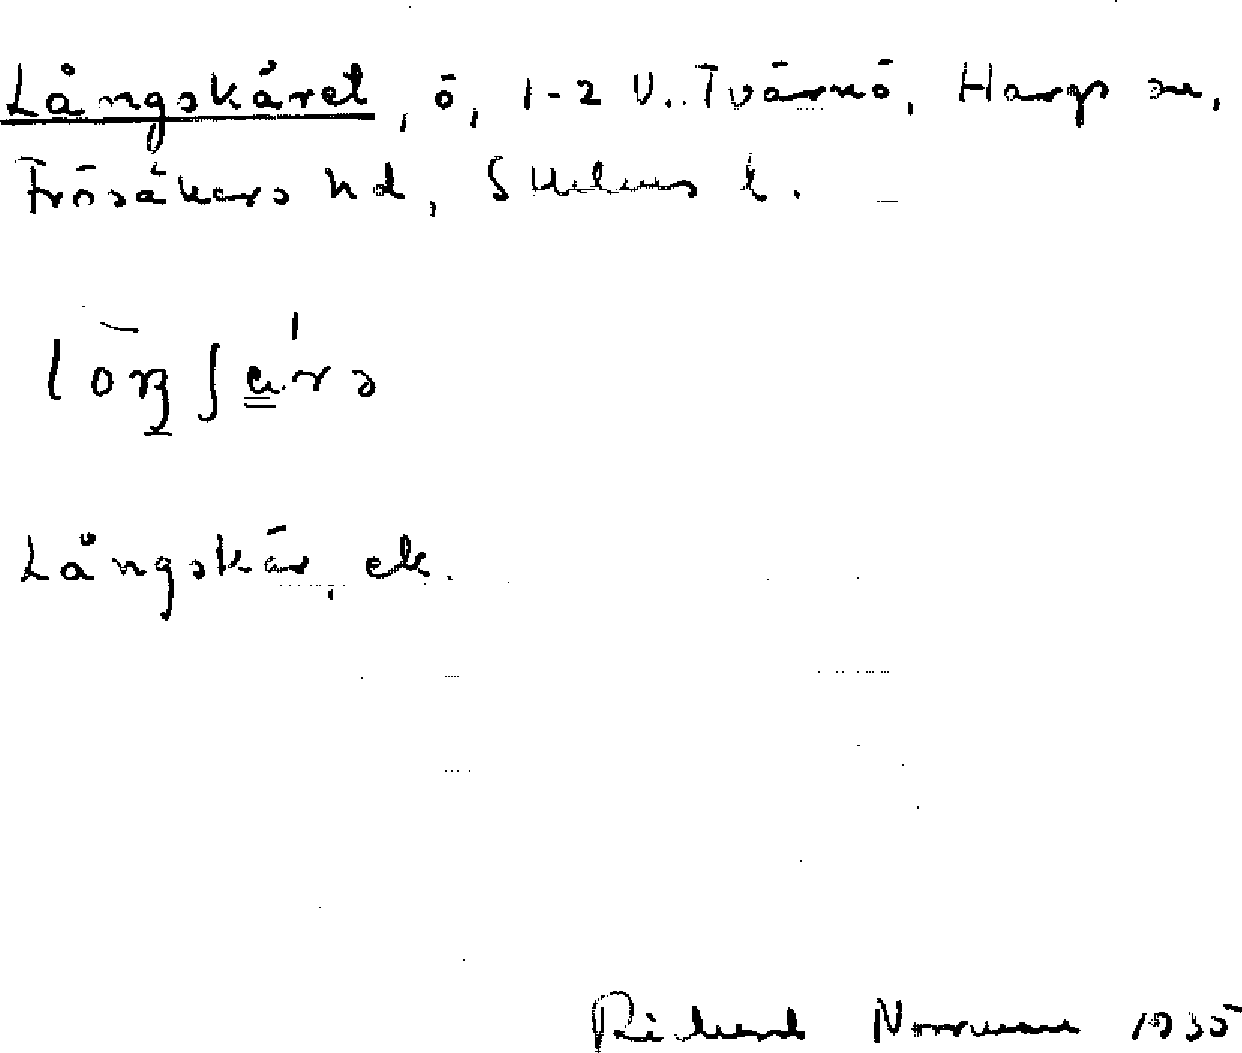 Långskäret, ö, 1-2 V. Tvärnö, Hargs sn,
Frösåkers hd, Sthlms l.
Långskär, ek.
Richard Norrman 1935